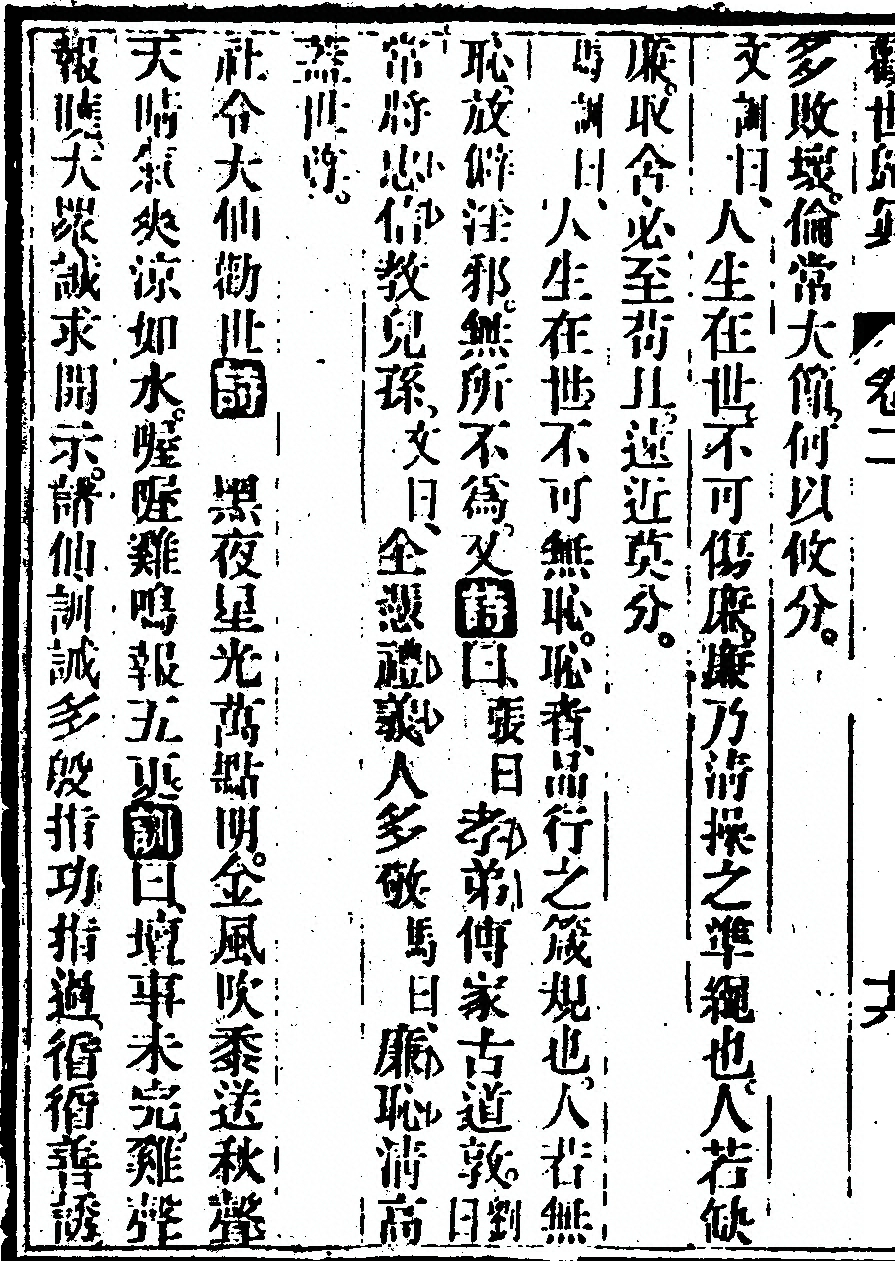 勸世歸真 卷二 十六
多敗壞。倫常大節、何以攸分。
文訓曰、人生在世、不可傷廉。廉乃清操之準繩也。人若缺
廉。取舍必至苟且。遠近莫分。
馬訓曰、人生在世、不可無恥。恥者、品行之箴規也、人若無
恥、放僻淫邪。無所不為。又詩曰、張曰孝弟傳家古道敦。劉曰
常將忠信教兒孫、文曰、全憑禮義人多敬馬曰、廉恥清高
蓋世尊。
社令大仙勸世詩 黑夜星光萬點明。金風吹黍送秋聲
天晴氣爽涼如水。喔喔雞鳴報五更。訓曰、壇事未完、雞聲
報曉、大眾誠求開示。諸仙訓誡多般指功指過、循循善誘